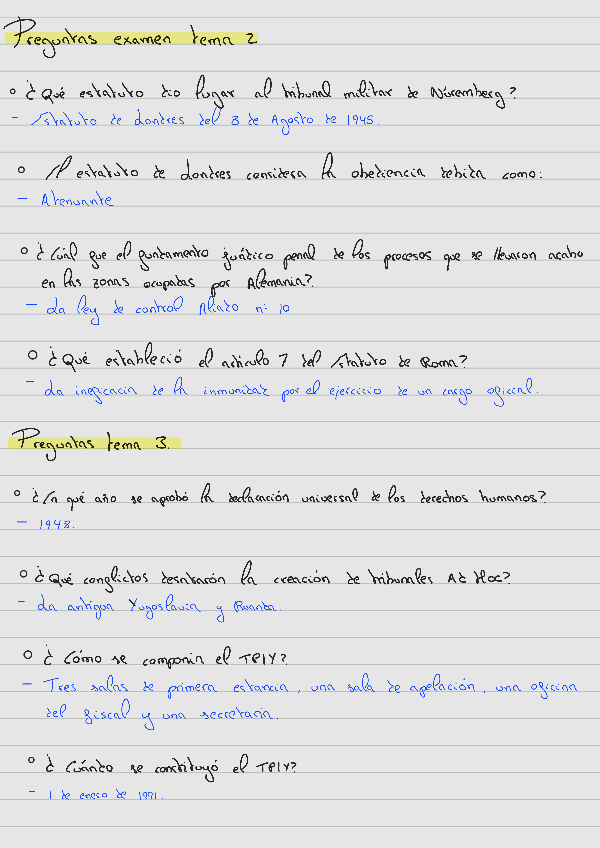 Preguntas examen tema 2
¿Qué estatuto dio lugar al tribunal militar de Núremberg?
- Estatuto de Londres del 8 de Agosto de 1945.
El estatuto de Londres considera la obediencia debida como:
- Atenuante
¿Cuál fue el fundamento jurídico penal de los procesos que se llevaron acabo
en las zonas ocupadas por Alemania?
- La ley de control Aliado nº 10
¿Qué estableció el artículo 7 del Estatuto de Roma?
- La ineficacia de la inmunidad por el ejercicio de un cargo oficial.
Preguntas tema 3.
¿En qué año se aprobó la declaración universal de los derechos humanos?
- 1948.
¿Qué conflictos desatarón la creación de tribunales Ad Hoc?
- La antigua Yugoslavia y Ruanda.
¿Cómo se componía el TPIY?
- Tres salas de primera estancia, una sala de apelación, una oficina
del fiscal y una secretaria.
¿Cuándo se constituyó el TPIY?
- 1 de enero de 1991.